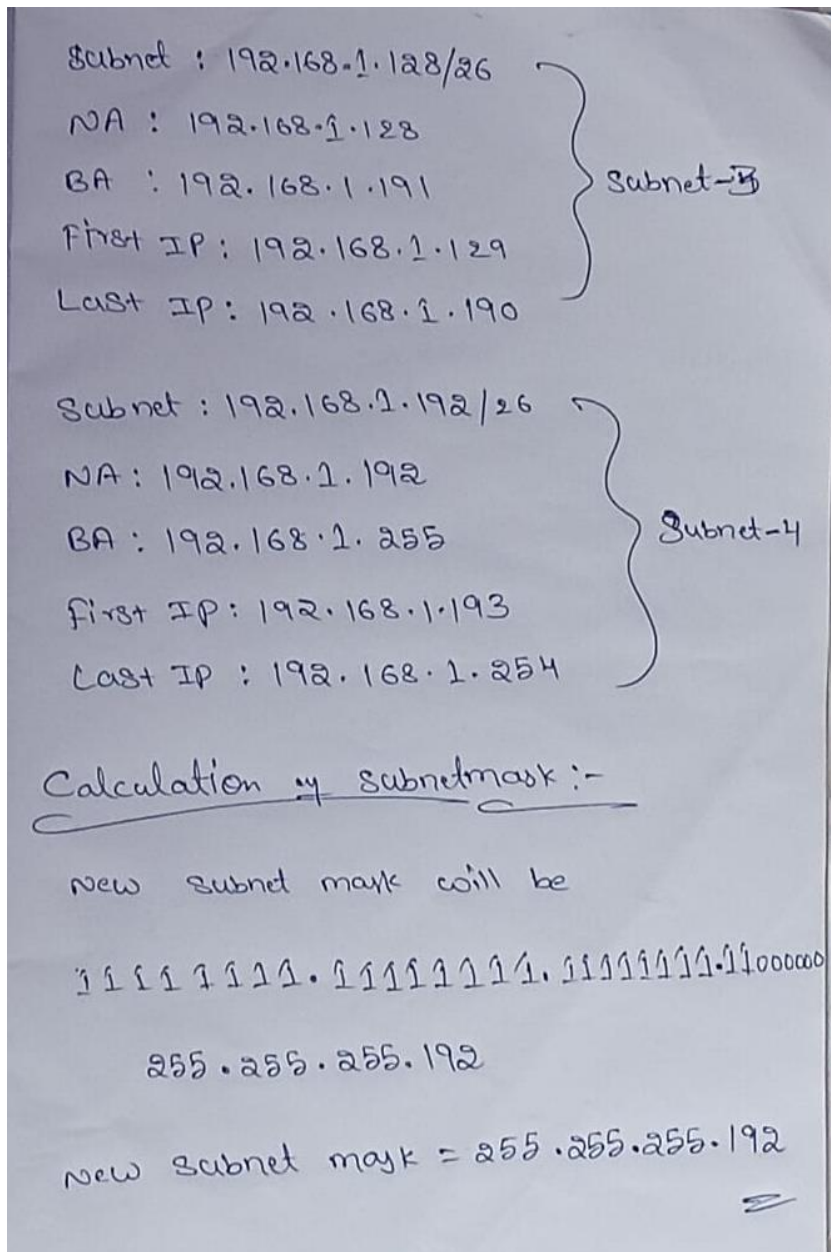 Subnet : 192.168.1.128/26
NA : 192.168.1.128
BA : 192.168.1.191
Subnet-3
First IP : 192.168.1.129
Last IP : 192.168.1.190
Subnet : 192.168.1.192/26
NA : 192.168.1.192
BA : 192.168.1.255
Subnet-4
First IP : 192.168.1.193
Last IP : 192.168.1.254
Calculation of subnetmask :-
New subnet mask will be
11111111.11111111.11111111.11000000
255.255.255.192
New subnet mask = 255.255.255.192